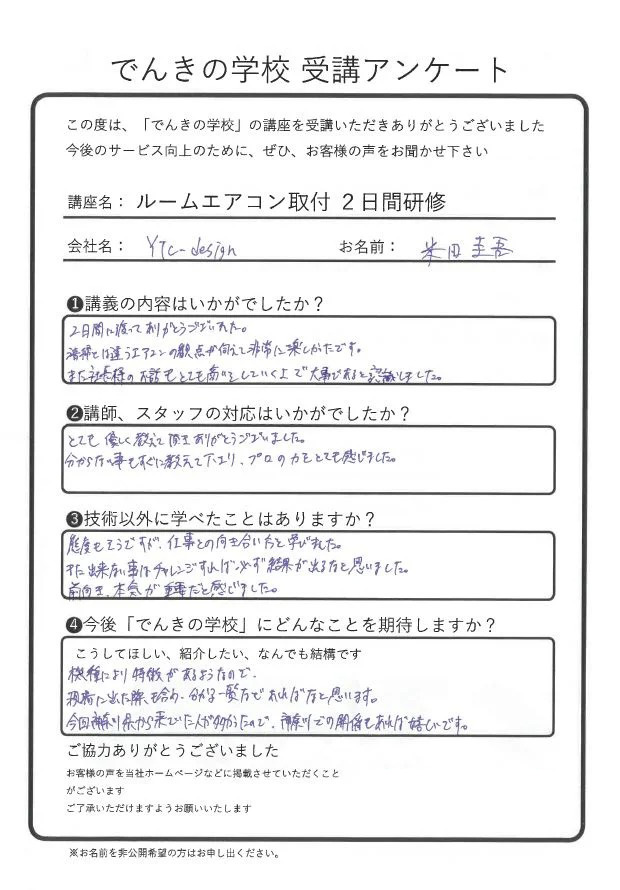 でんきの学校 受講アンケート
この度は、「でんきの学校」の講座を受講いただきありがとうございました
今後のサービス向上のために、ぜひ、お客様の声をお聞かせ下さい
講座名： ルームエアコン取付 ２日間研修
会社名： YTC-design お名前： 米田 圭吾
❶講義の内容はいかがでしたか？
2日間に渡ってありがとうございました。
清掃とは違うエアコンの観点が伺えて非常に楽しかったです。
また社長様のお話もとても商いとしていく上で大事であると認識しました。
❷講師、スタッフの対応はいかがでしたか？
とても優しく教えて頂きありがとうございました。
分からない事もすぐに教えて下さり、プロの力をとても感じました。
❸技術以外に学べたことはありますか？
態度もそうですが、仕事との向き合い方と学びました。
また出来ない事はチャレンジすれば必ず結果が出る方と思いました。
前向き、本気が重要だと感じました。
❹今後「でんきの学校」にどんなことを期待しますか？
こうしてほしい、紹介したい、なんでも結構です
機種により特徴があるようなので、
現場に出た際も含め、分かる一覧などであればなと思います。
今回神奈川県から来ていた人が多かったので、神奈川での開催もあれば嬉しいです。
ご協力ありがとうございました
お客様の声を当社ホームページなどに掲載させていただくこと
がございます
ご了承いただけますようお願いいたします
※お名前を非公開希望の方はお申し出ください。